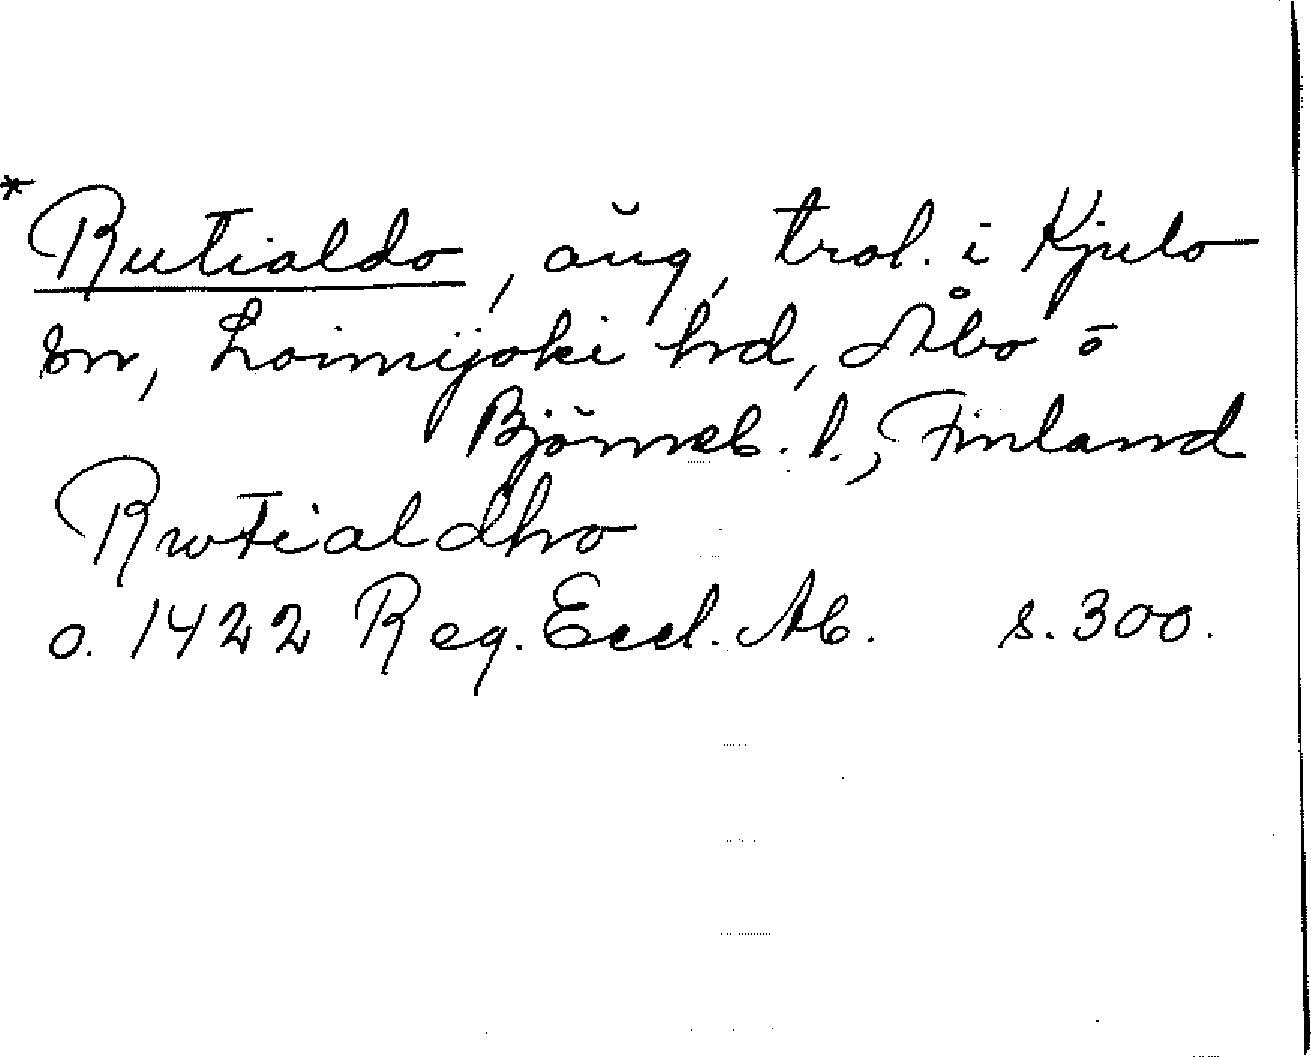 * Rutialdo, äng, trol. i Kjulo
sn, Loimijoki hrd, Åbo o
Björneb. l., Finland
Rwtialdho
o. 1422 Reg. Eccl. Ab. s. 300.